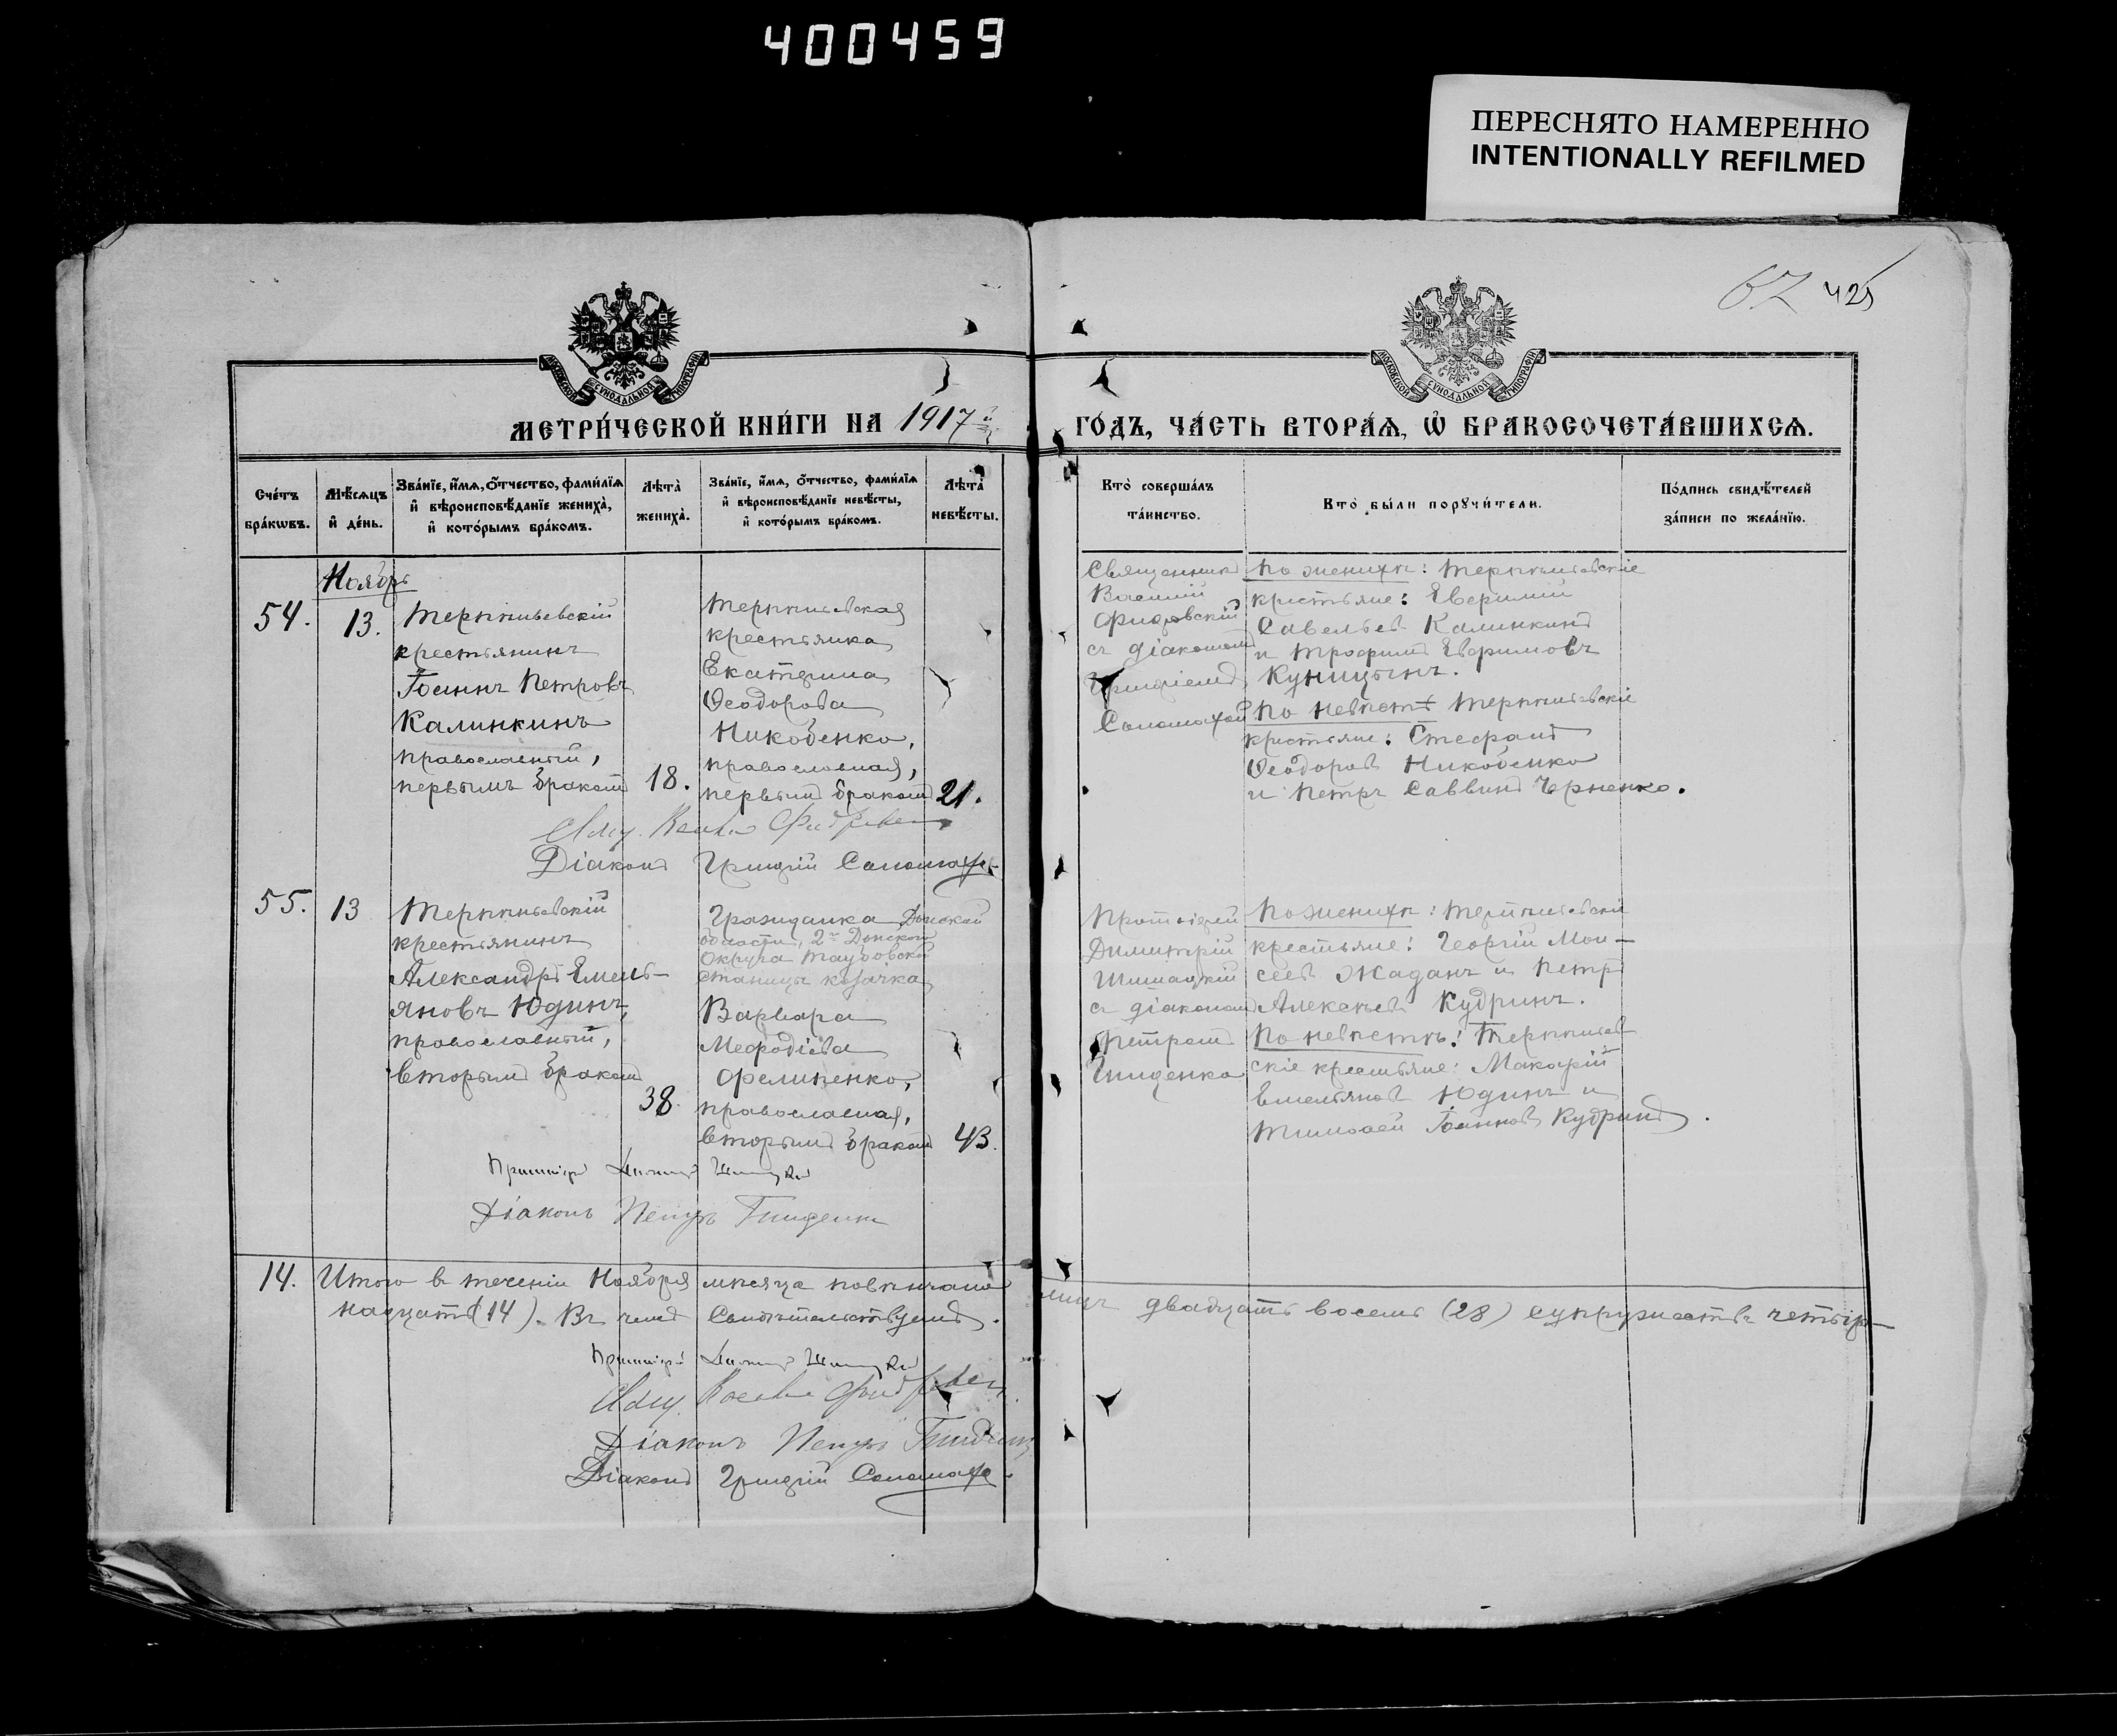 400459
ПЕРЕСНЯТО НАМЕРЕННО
INTENTIONALLY REFILMED
425
МОСКОВСКОЙ СѴНОДАЛЬНОЙ ТИПОГРАФІИ
МОСКОВСКОЙ СѴНОДАЛЬНОЙ ТИПОГРАФІИ
МЕТРИ́ЧЕСКОЙ КНИ́ГИ НА 1917 ГО́ДЪ, ЧА́СТЬ ВТОРА́Ѧ, Ѽ БРАКОСОЧЕТА́ВШИХСѦ.
Сче́тъ бра́кωвъ.
Мѣ́сяцъ и҆ де́нь.
Зва́нїе, и҆́мѧ, ѻ҆́тчество, фами́лїѧ и҆ вѣроисповѣ́данїе жениха̀, и҆ кото́рымъ бра́комъ.
Лѣта̀ жениха̀.
Зва́нїе, и҆́мѧ, ѻ҆́тчество, фами́лїѧ и҆ вѣроисповѣ́данїе невѣ́сты, и҆ кото́рымъ бра́комъ.
Лѣта̀ невѣ́сты.
Кто̀ соверша́лъ та́инство.
Кто̀ бы́ли порꙋчи́тели.
По́дпись свидѣ́телей за́писи по жела́нїю.
Ноябрь
54.
13.
Терпѣньевскій
крестьянинъ
Іоаннъ Петровъ
Калинкинъ
православный,
первымъ бракомъ
18.
Терпѣньевская
крестьянка
Екатерина
Ѳеодорова
Никобенко,
православная,
первымъ бракомъ
21.
Священникъ
Василій
съ діакономъ
Григоріемъ
Соломахой
По женихѣ: Терпѣньевскіе
крестьяне: Евфимій
Савельевъ Калинкинъ
и Трофимъ Евфимовъ
Куницынъ.
По невѣстѣ Терпѣньевскіе
крестьяне: Стефанъ
Ѳеодоровъ Никобенко
и Петръ Саввинъ Черненко.
Діаконъ Григорій Соломаха
55.
13
Терпѣньевскій
крестьянинъ
Александръ Емель-
яновъ Юдинъ,
православный,
вторымъ бракомъ
38.
Гражданка Донской
области, 2го Донского
Округа
станицы козачка
Варвара
Меѳодіева
Филипенко,
православная,
вторымъ бракомъ
43.
Протоіерей
Димитрій
Шишацкій
съ діакономъ
Петромъ
Гниденко
По женихѣ: Терпѣньевскіе
крестьяне: Георгій Мои-
сеевъ Жаданъ и Петръ
Алексѣевъ Кудринъ.
По невѣстѣ: Терпѣньев-
скіе крестьяне: Макарій
Емельяновъ Юдинъ и
Тимоѳей Іоанновъ Кудринъ.
Діаконъ Петръ Гниденко
14.
Итого въ теченіи Ноября мѣсяца повѣнчано лицъ двадцать восемь (28) супружествъ четыр-
надцать (14). Въ чемъ Свидѣтельствуемъ.
Діаконъ Петръ Гниденко
Діаконъ Григорій Соломаха